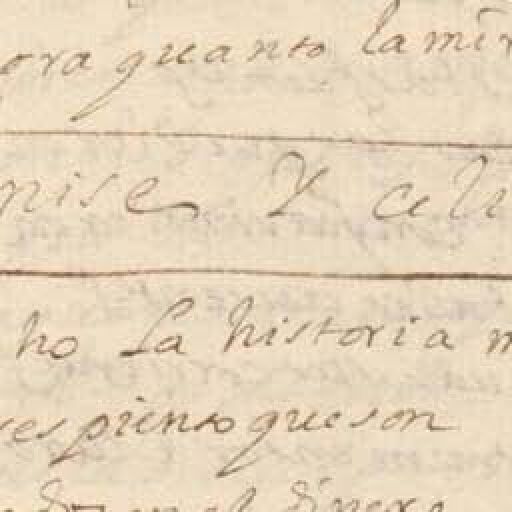 ora quanto la mir
nise Y celi
ho La historia m
res pienso que son
el dinero